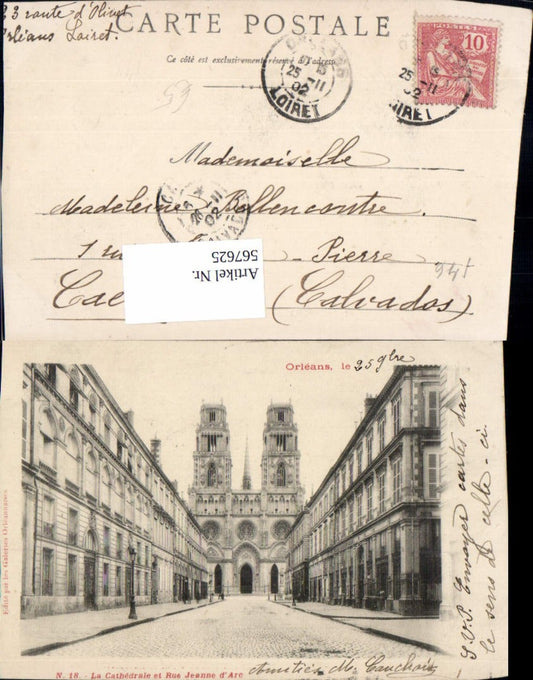 23 route d'Olivet
Orléans Loiret
CARTE POSTALE
Ce côté est exclusivement réservé à l'adresse
10
25 - 11
02
LOIRET
25 - 11
02
LOIRET
53
Mademoiselle
Madeleine Bellencontre
26 - 11
02
1 ru
Pierre
Cae
(Calvados)
Artikel Nr.
567625
Orléans, le 25 9bre
Edité par les Galeries Orléanaises
S.V.P. Envoyer cartes dans
le sens de celle-ci.
N. 18. - La Cathédrale et Rue Jeanne d'Arc
Amitiés M. Cauchoix